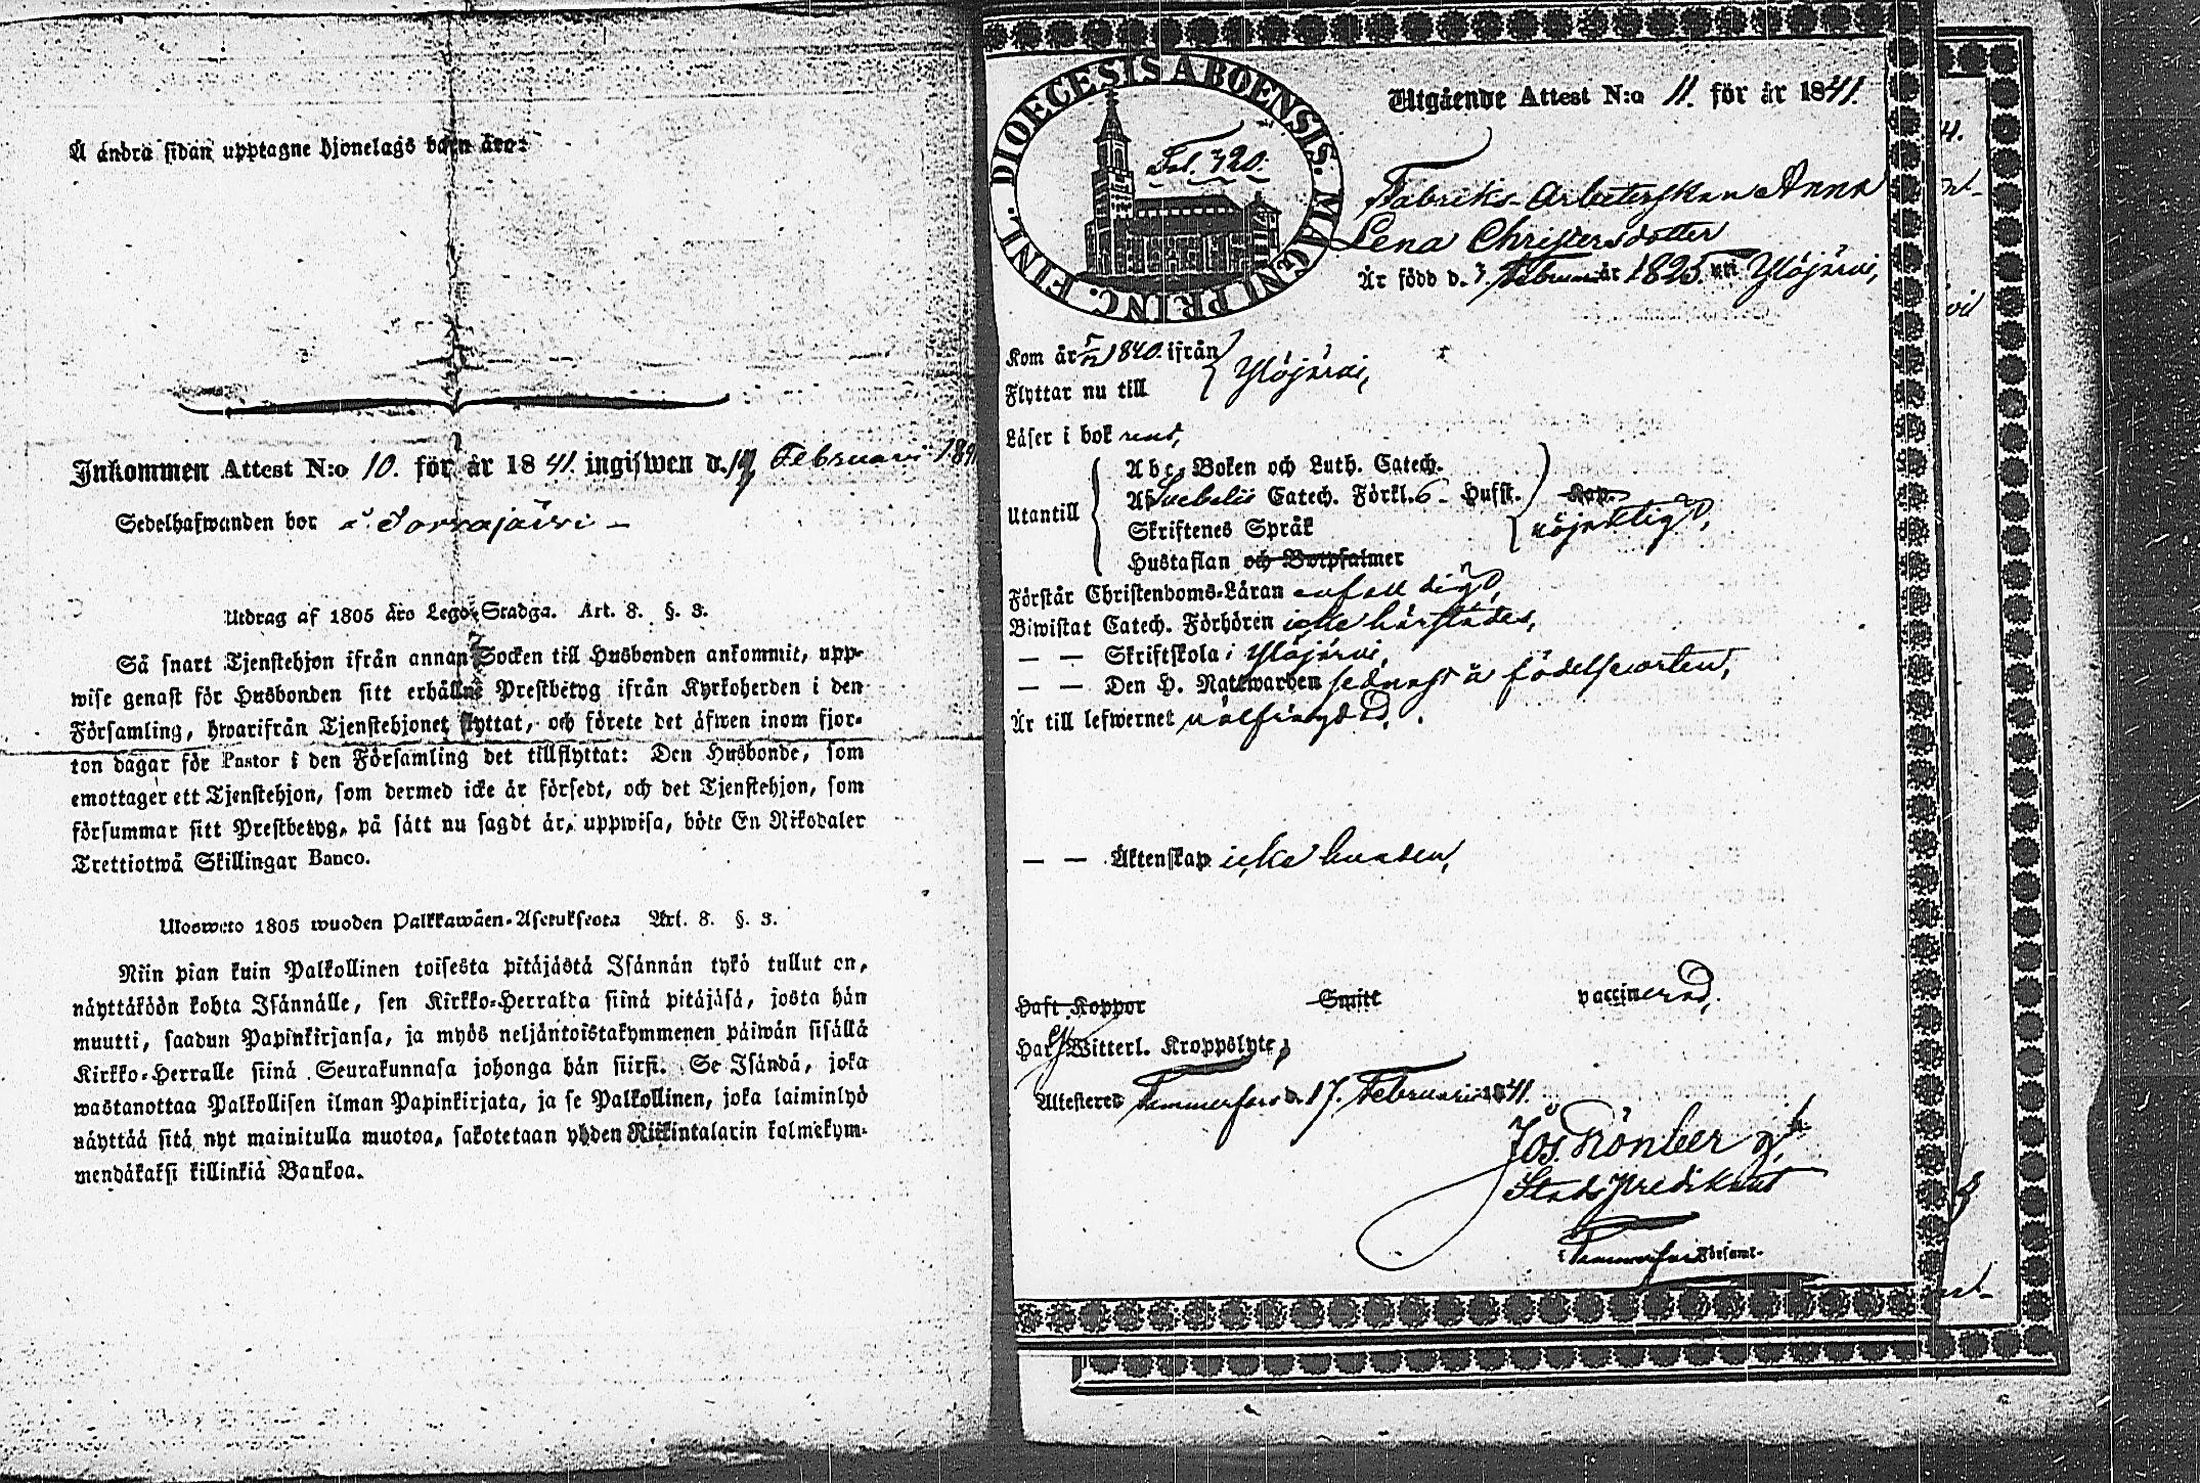 Å andra sidan upptagne hjonelags barn äro:
Inkommen Attest N:o 10. för år 1841. ingifwen d. 19 Februari 184
Sedelhafwanden bor i Sorrajärvi –
Utdrag af 1805 års Lego-Stadga. Art. 8. §. 3.
Så snart Tjenstehjon ifrån annan Socken till Husbonden ankommit, upp-
wise genast för Husbonden sitt erhållne Prestbetyg ifrån Kyrkoherden i den
Församling, hwarifrån Tjenstehjonet flyttat, och förete det äfwen inom fjor-
ton dagar för Pastor i den Församling det tillflyttat: Den Husbonde, som
emottager ett Tjenstehjon, som dermed icke är försedt, och det Tjenstehjon, som
försummar sitt Prestbetyg, på sätt nu sagdt är, uppwisa, böte En Riksdaler
Trettiotwå Skillingar Banco.
Ulosweto 1805 wuoden Palkkawäen-Asetuksesta Art. 8. §. 3.
Niin pian kuin Palkollinen toisesta pitäjästä Isännän tykö tullut on,
näyttäköön kohta Isännälle, sen Kirkko-Herralda siinä pitäjäsä, josta hän
muutti, saadun Papinkirjansa, ja myös neljäntoistakymmenen päiwän sisällä
Kirkko-Herralle siinä Seurakunnasa johonga hän siirsi. Se Isändä, joka
wastanottaa Palkollisen ilman Papinkirjata, ja se Palkollinen, joka laiminlyö
näyttää sitä nyt mainitulla muotoa, sakotetaan yhden Riikintalarin kolmekym-
mendäkaksi killinkiä Bankoa.
DIOECESIS ABOENSIS. MAGNI PRINC. FINL.
Fol. 320.
Utgående Attest N:o 11. för år 1841.
Fabriks-Arbeterskan Anna
Lena Christersdotter
Är född d. 3. Februari år 1825. uti Ylöjärvi,
Kom år 1840. ifrån
Flyttar nu till } Ylöjärvi,
Läser i bok rent,
Utantill
Abc-Boken och Luth. Catech.
Svebelii Catech. Förkl. 6 Hufst. Kap.
Skriftenes Språk nöjaktigt,
Hustaflan och Botpsalmer
Förstår Christendoms-Läran enfaldigt,
Biwistat Catech. Förhören icke härstädes,
— — Skriftskola i Ylöjärvi,
— — Den H. Nattwarden sednast å födelseorten,
Är till lefwernet wälfrägdad.
— — Äktenskap icke bunden,
Haft Koppor Smitt vaccinerad.
Har ej Witterl. Kroppslyte,
Attesteres Tammerfors d. 17. Februarii 1841.
Jos. Grönberg
Stads Predikant
i Tammerfors Församl.